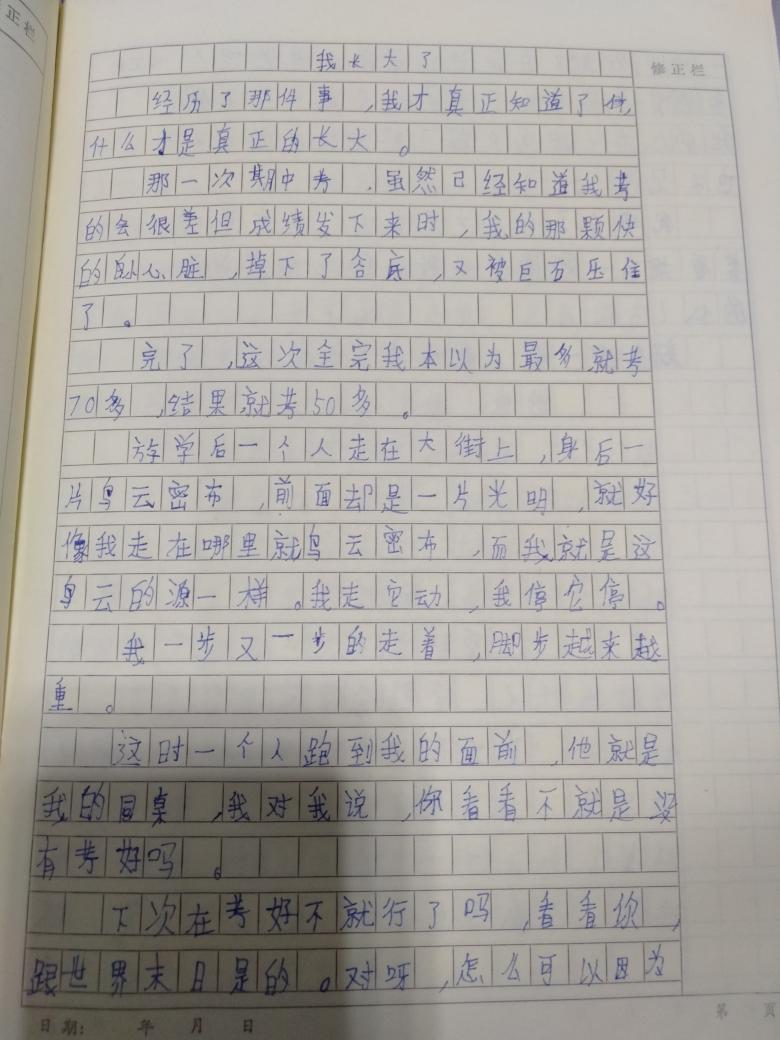 正栏
我长大了
修正栏
经历了那件事,我才真正知道了件,
什么才是真正的长大。
那一次期中考,虽然已经知道我考
的会很差但成绩发下来时,我的那颗快
的的小心脏,掉下了谷底,又被巨石压住
了。
完了,这次全完我本以为最多就考
70多,结果就考50多。
放学后一个人走在大街上,身后一
片乌云密布,前面却是一片光明,就好
像我走在哪里就乌云密布,而我就是这
乌云的源一样。我走它动,我停它停。
我一步又一步的走着,脚步越来越
重。
这时一个人跑到我的面前,他就是
我的同桌,我对我说,你看看不就是没
有考好吗。
下次在考好不就行了吗,看看你,
跟世界末日是的。对呀,怎么可以因为
日期: 年 月 日
第 页